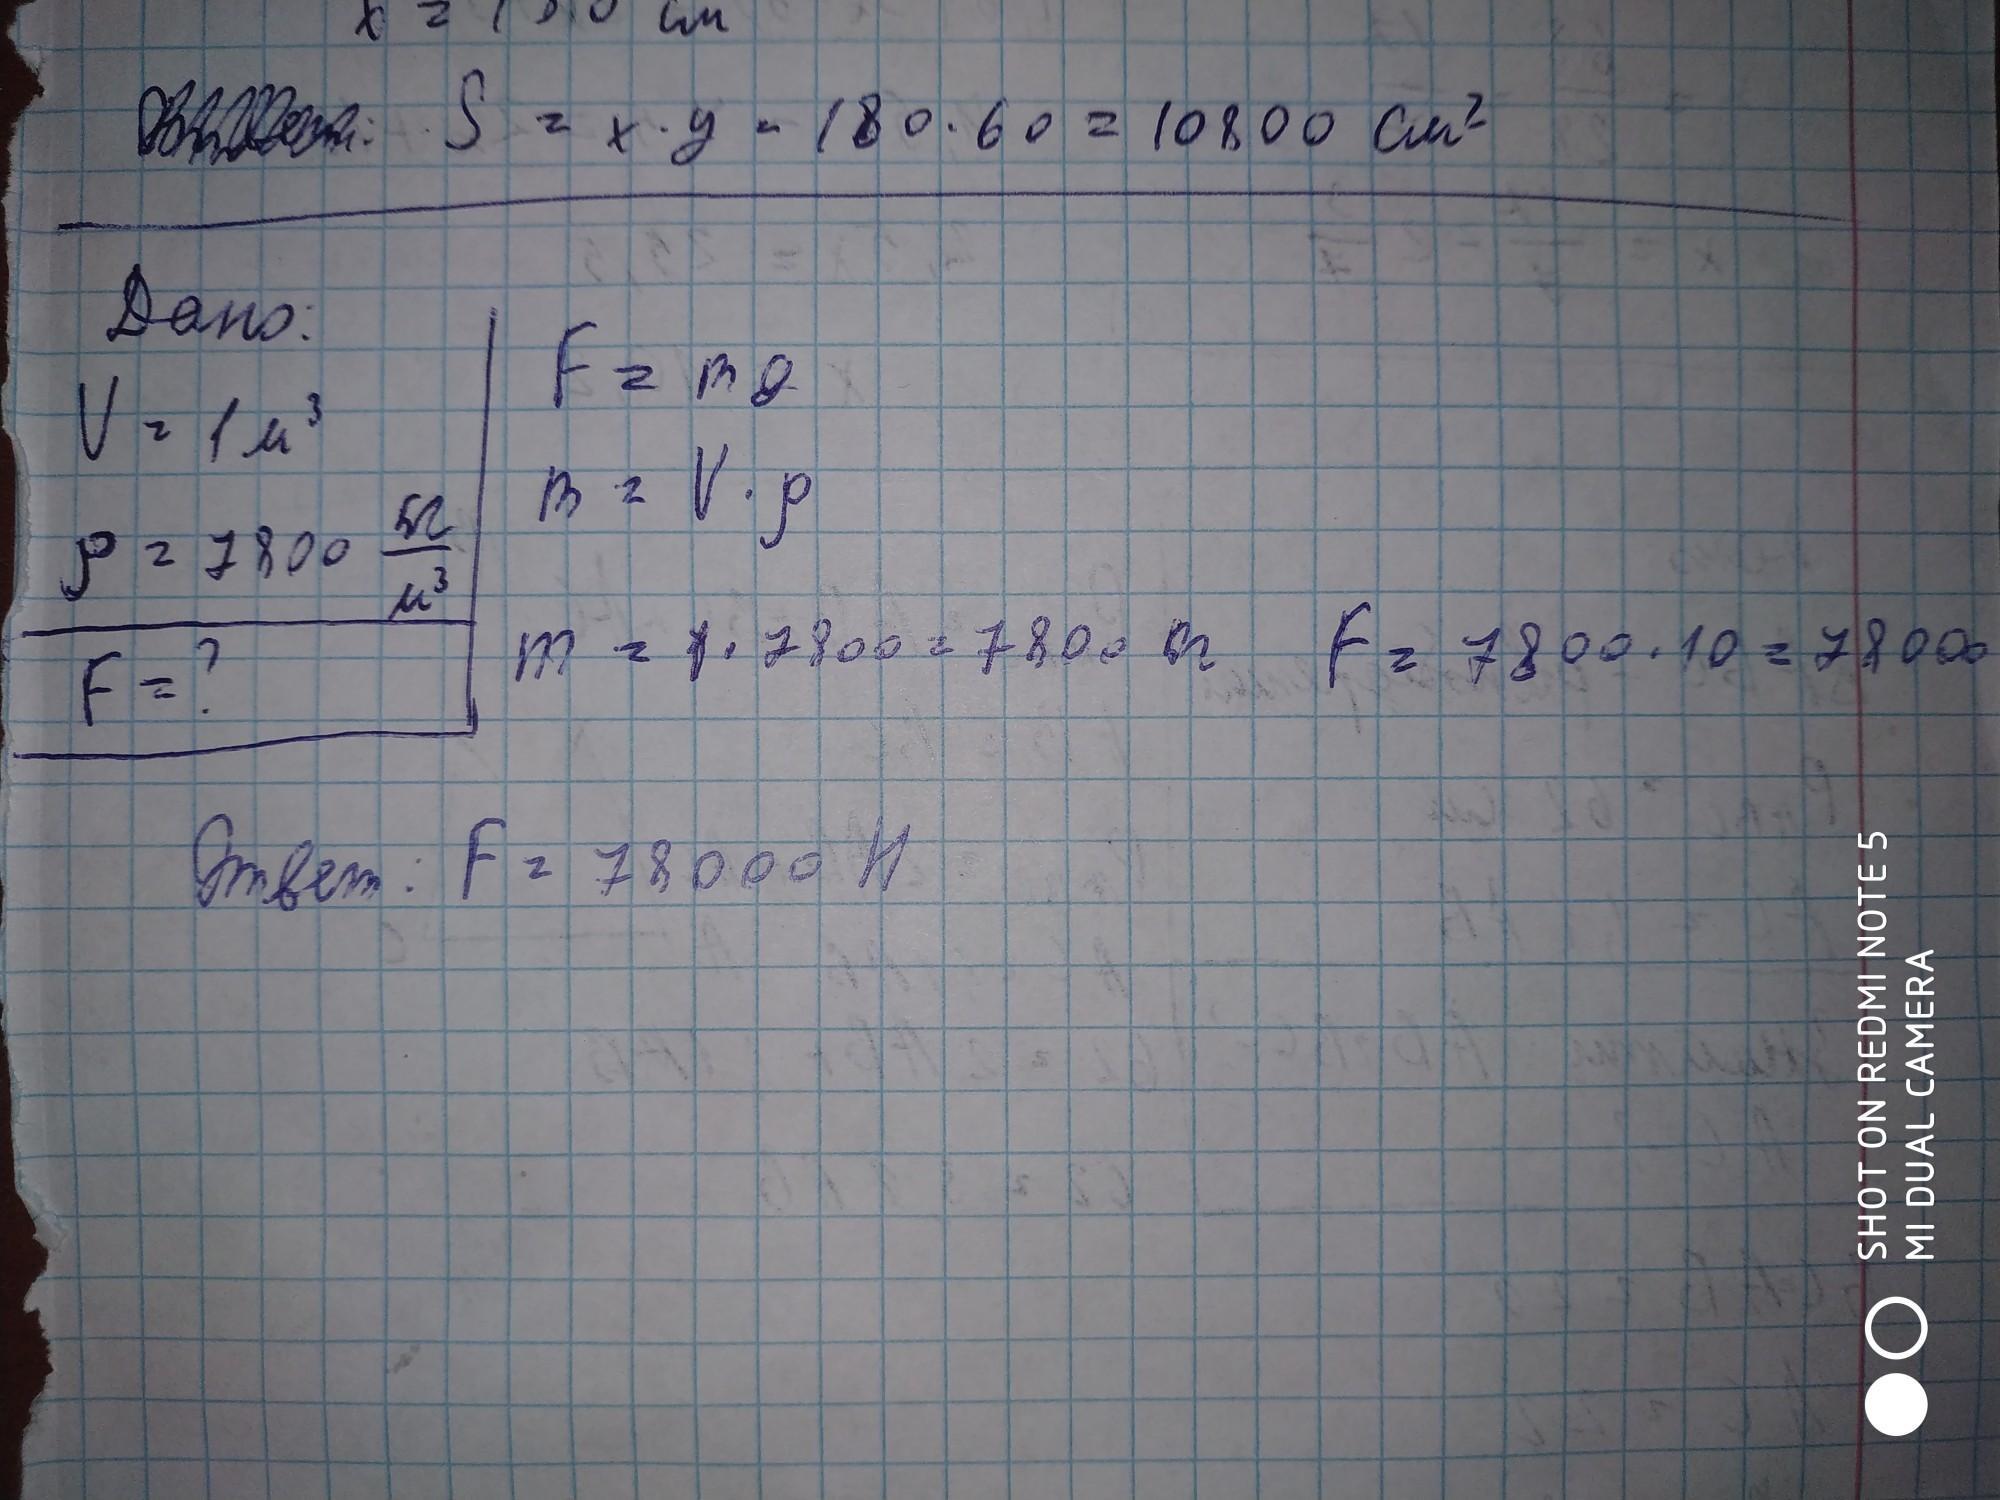 x = 180 см
S = x · y = 180 · 60 = 10800 см²
Дано:
V = 1 м³
ρ = 7800 кг/м³
F = ?
F = mg
m = V · ρ
m = 1 · 7800 = 7800 кг F = 7800 · 10 = 78000
Ответ: F = 78000 Н
SHOT ON REDMI NOTE 5
MI DUAL CAMERA